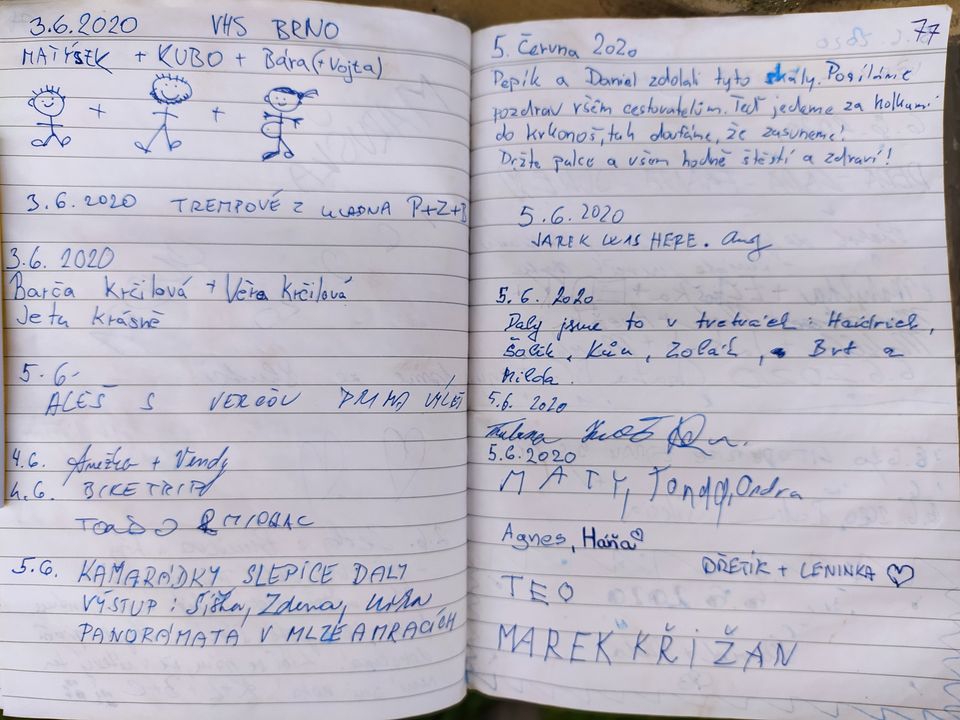 3.6.2020 VHS BRNO
MATÝSEK + KUBO + Bára (+ Vojta)
+ +
3.6.2020 TREMPOVÉ Z KLADNA P+Z+B
3.6. 2020
Barča Krčilová + Věra Krčilová
Je tu krásně
5.6.
ALEŠ S VERČOU PRIMA VÝLET
4.6. Anežka + Vendy
4.6. BIKETRIP
5.6. KAMARÁDKY SLEPICE DALY
VÝSTUP : Šiška, Zdena,
PANORÁMATA V MLZE A MRACÍCH
77
5. Června 2020
Pepík a Daniel zdolali tyto skály. Posíláme
pozdrav všem cestovatelům. Teď jedeme za holkami
do Krkonoš, tak doufáme, že zasuneme!
Držte palce a všem hodně štěstí a zdraví!
5.6.2020
JAREK WAS HERE.
5.6. 2020
Daly jsme to v tretrách : Haidrich,
Šolik, Kůn, Zolák, Brt a
Milda.
5.6. 2020
5.6.2020
MATY, Tonda, Ondra
Agnes, Háňa ♡
DŘETIK + LENINKA ♡
TEO
MAREK KŘIŽAN